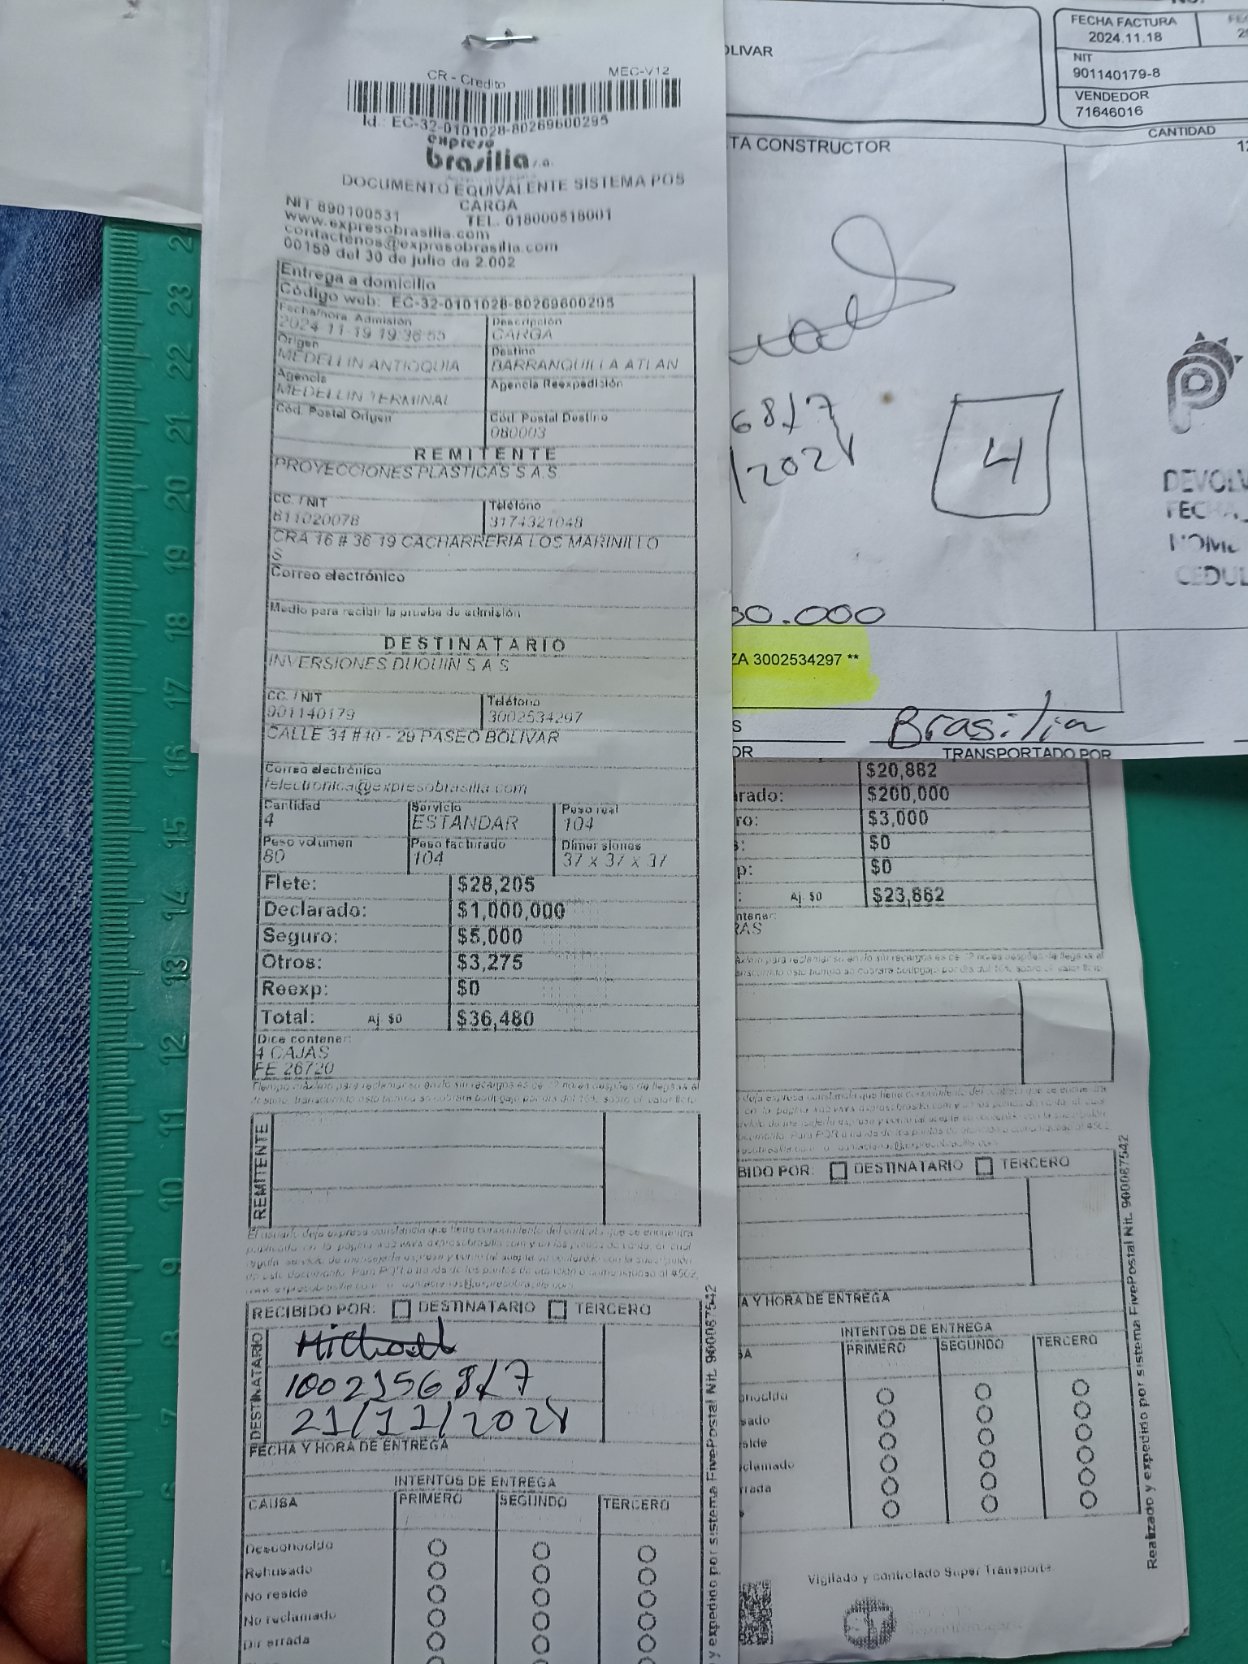 CR - Credito MEC-V12
Id.: EC-32-0101028-80269600295
expreso
brasilia s.a.
DOCUMENTO EQUIVALENTE SISTEMA POS
CARGA
NIT 890100531 TEL. 018000518001
www.expresobrasilia.com
contactenos@expresobrasilia.com
00159 del 30 de julio de 2.002
Entrega a domicilio
Código web: EC-32-0101028-80269600295
Fecha/hora Admisión Descripción
2024-11-19 19:36:55 CARGA
Origen Destino
MEDELLIN ANTIOQUIA BARRANQUILLA ATLAN
Agencia Agencia Reexpedisión
MEDELLIN TERMINAL
Cód. Postal Origen Cód. Postal Destino
080003
REMITENTE
PROYECCIONES PLASTICAS S.A.S
CC. / NIT Teléfono
811020078 3174321048
CRA 16 # 36 19 CACHARRERIA LOS MARINILLO
S
Correo electrónico
Medio para recibir la prueba de admisión
DESTINATARIO
INVERSIONES DUQUIN S A S
CC. / NIT Teléfono
901140179 3002534297
CALLE 34 #40 - 29 PASEO BOLIVAR
Correo electrónico
felectronica@expresobrasilia.com
Cantidad Servicio Peso real
4 ESTANDAR 104
Peso volumen Peso facturado Dimensiones
80 104 37 x 37 x 37
Flete: $28,205
Declarado: $1,000,000
Seguro: $5,000
Otros: $3,275
Reexp: $0
Total: Aj $0 $36,480
Dice contener:
4 CAJAS
FE 26720
REMITENTE
RECIBIDO POR: DESTINATARIO TERCERO
DESTINATARIO
Michael
21/11/2024
FECHA Y HORA DE ENTREGA
INTENTOS DE ENTREGA
CAUSA PRIMERO SEGUNDO TERCERO
Desconocido
Rehusado
No reside
No reclamado
Dir errada
y expedido por sistema FivePostal Nit. 900087542
OLIVAR
FECHA FACTURA
2024.11.18
NIT
901140179-8
VENDEDOR
71646016
TA CONSTRUCTOR
CANTIDAD
4
DEVOLV
FECHA
NOM
CEDUL
30.000
ZA 3002534297 **
Brasilia
TRANSPORTADO POR
$20,882
arado: $200,000
ro: $3,000
: $0
p: $0
: Aj $0 $23,882
ntener:
RAS
BIDO POR: DESTINATARIO TERCERO
A Y HORA DE ENTREGA
INTENTOS DE ENTREGA
SA PRIMERO SEGUNDO TERCERO
nocido
sado
side
clamado
rrada
Vigilado y controlado Super Transporte
Realizado y expedido por sistema FivePostal Nit. 900087542